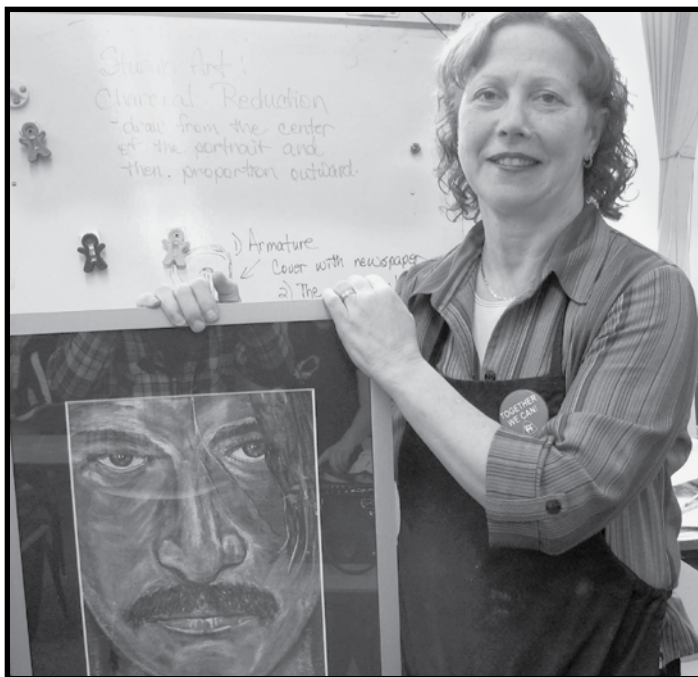 Studio Art:
Charcoal Reduction
-draw from the center
of the portrait and
then proportion outward.
1) Armature
Cover with newspaper
2) The
TOGETHER
WE CAN!